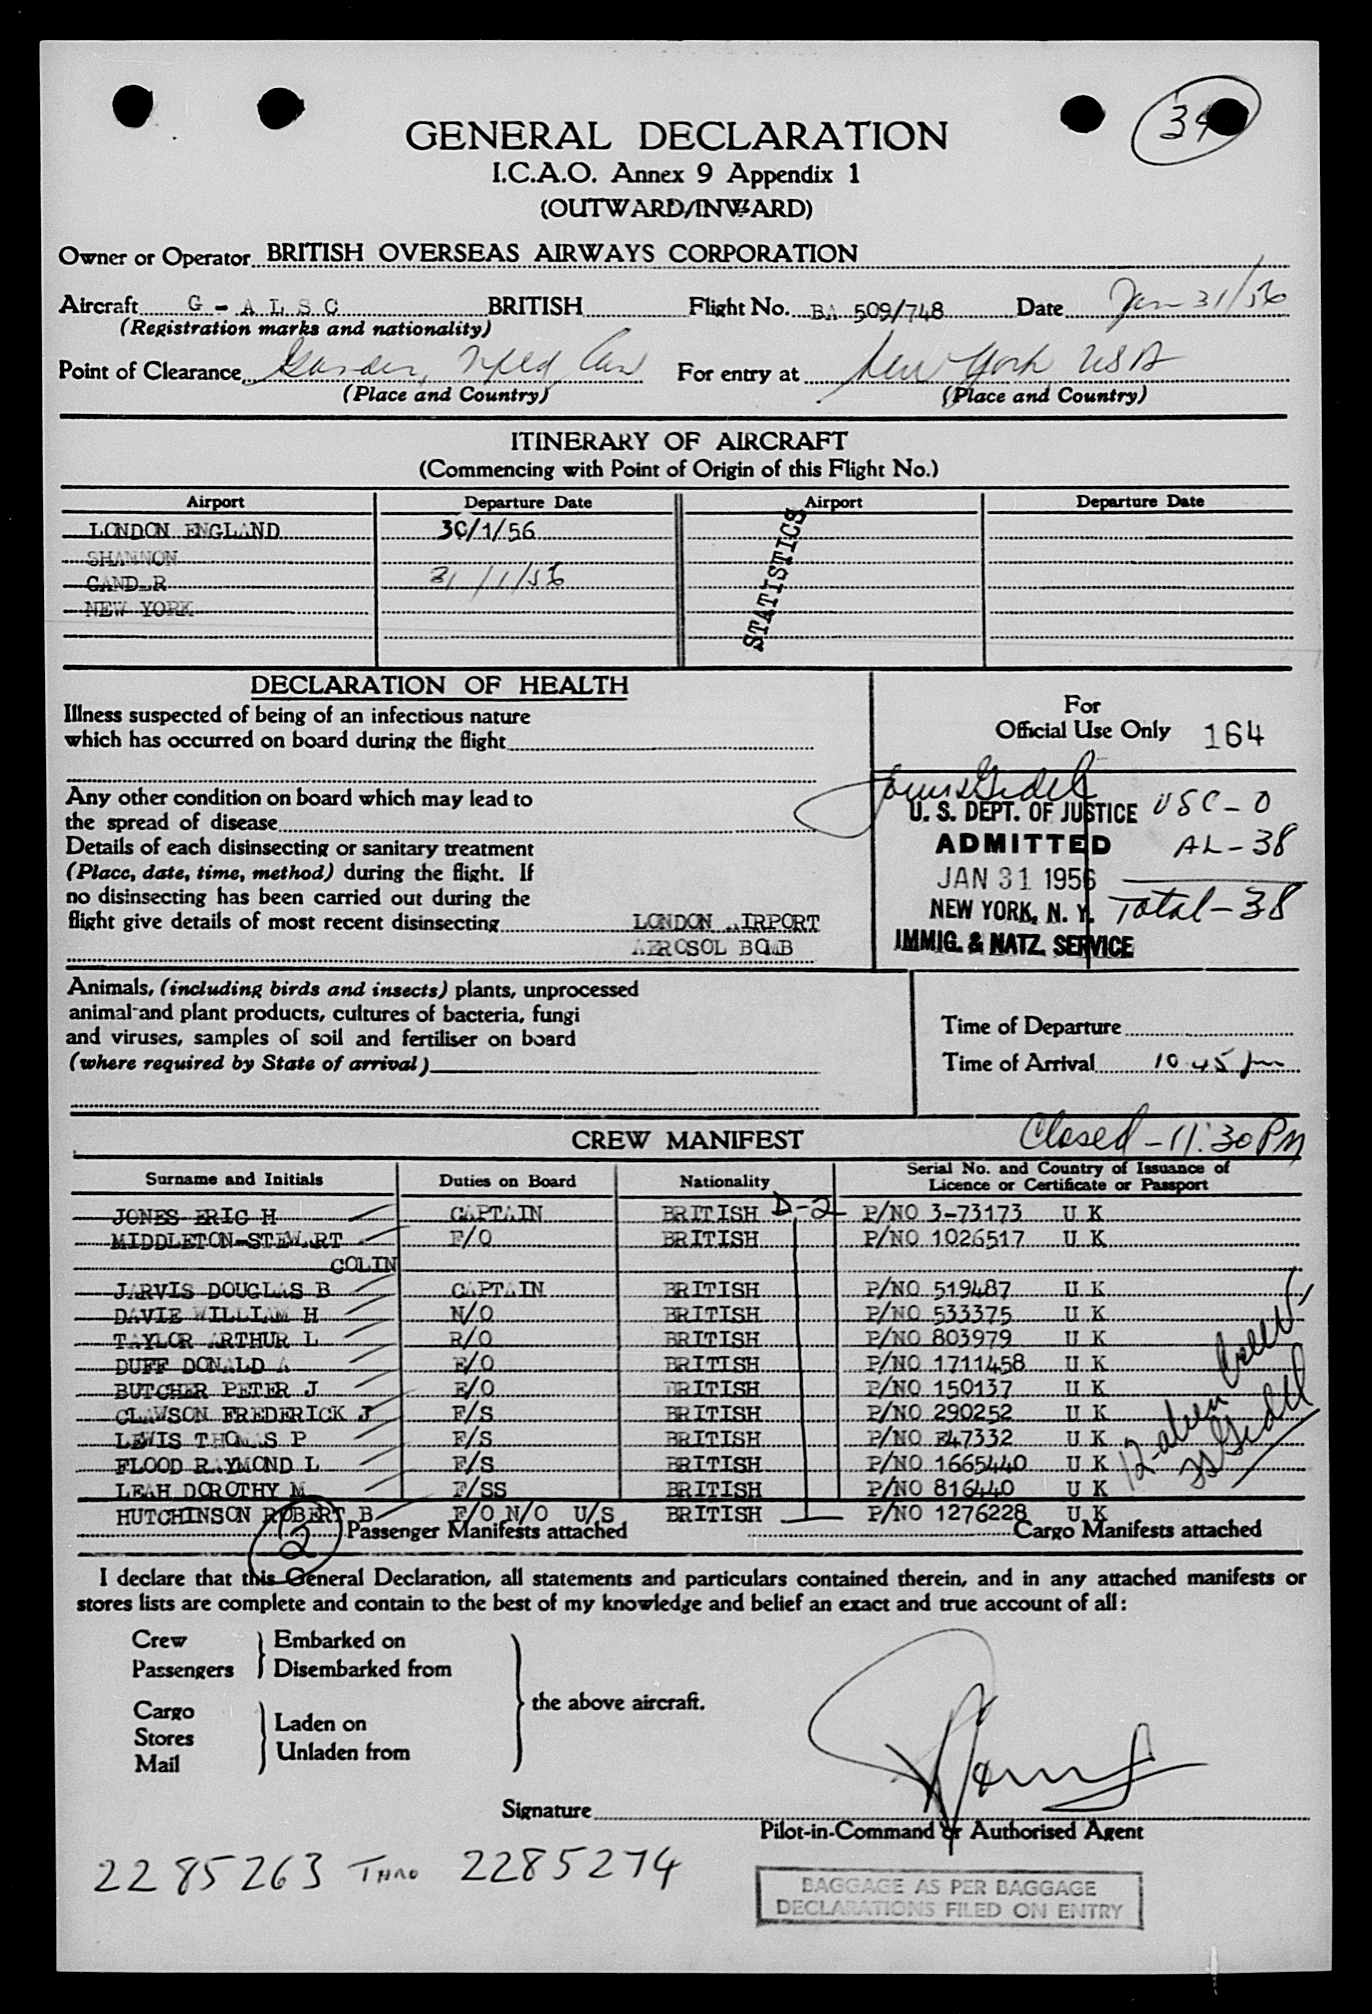 34
GENERAL DECLARATION
I.C.A.O. Annex 9 Appendix 1
(OUTWARD/INWARD)
Owner or Operator BRITISH OVERSEAS AIRWAYS CORPORATION
Aircraft G - A L S C BRITISH Flight No. BA 509/748 Date Jan 31/56
(Registration marks and nationality)
Point of Clearance Gander, Nfld Can For entry at New York USA
(Place and Country) (Place and Country)
ITINERARY OF AIRCRAFT
(Commencing with Point of Origin of this Flight No.)
Airport Departure Date Airport Departure Date
LONDON ENGLAND 30/1/56
SHANNON
GANDER 31/1/56
NEW YORK
STATISTICS
DECLARATION OF HEALTH
Illness suspected of being of an infectious nature
which has occurred on board during the flight
Any other condition on board which may lead to
the spread of disease
Details of each disinsecting or sanitary treatment
(Place, date, time, method) during the flight. If
no disinsecting has been carried out during the
flight give details of most recent disinsecting LONDON AIRPORT
AEROSOL BOMB
For
Official Use Only 164
U. S. DEPT. OF JUSTICE USC - 0
ADMITTED AL - 38
JAN 31 1956
NEW YORK, N. Y. Total - 38
IMMIG. & NATZ. SERVICE
Animals, (including birds and insects) plants, unprocessed
animal and plant products, cultures of bacteria, fungi
and viruses, samples of soil and fertiliser on board
(where required by State of arrival)
Time of Departure
Time of Arrival 10 45 pm
CREW MANIFEST Closed - 11:30 PM
Surname and Initials Duties on Board Nationality Serial No. and Country of Issuance of
Licence or Certificate or Passport
JONES ERIC H CAPTAIN BRITISH D-2 P/NO 3-73173 U K
MIDDLETON-STEWART F/O BRITISH P/NO 1026517 U K
COLIN
JARVIS DOUGLAS B CAPTAIN BRITISH P/NO 519487 U K
DAVIE WILLIAM H N/O BRITISH P/NO 533375 U K
TAYLOR ARTHUR L R/O BRITISH P/NO 803979 U K
DUFF DONALD A E/O BRITISH P/NO 1711458 U K
BUTCHER PETER J E/O BRITISH P/NO 150137 U K
CLAWSON FREDERICK J F/S BRITISH P/NO 290252 U K
LEWIS THOMAS P F/S BRITISH P/NO E47332 U K
FLOOD RAYMOND L F/S BRITISH P/NO 1665440 U K
LEAH DOROTHY M F/SS BRITISH P/NO 816440 U K
HUTCHINSON ROBERT B F/O N/O U/S BRITISH P/NO 1276228 U K
12 alien crew
2 Passenger Manifests attached Cargo Manifests attached
I declare that this General Declaration, all statements and particulars contained therein, and in any attached manifests or
stores lists are complete and contain to the best of my knowledge and belief an exact and true account of all:
Crew Embarked on
Passengers Disembarked from
the above aircraft.
Cargo
Stores Laden on
Mail Unladen from
Signature
Pilot-in-Command or Authorised Agent
2285263 THRO 2285274
BAGGAGE AS PER BAGGAGE
DECLARATIONS FILED ON ENTRY